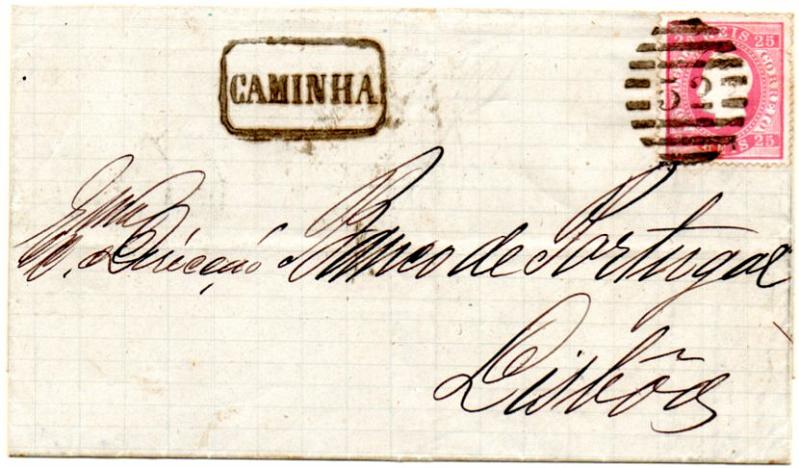 CAMINHA
25 REIS 25
CORREIO
52
25 REIS 25
Exma
Direcção Banco de Portugal
Lisbôa